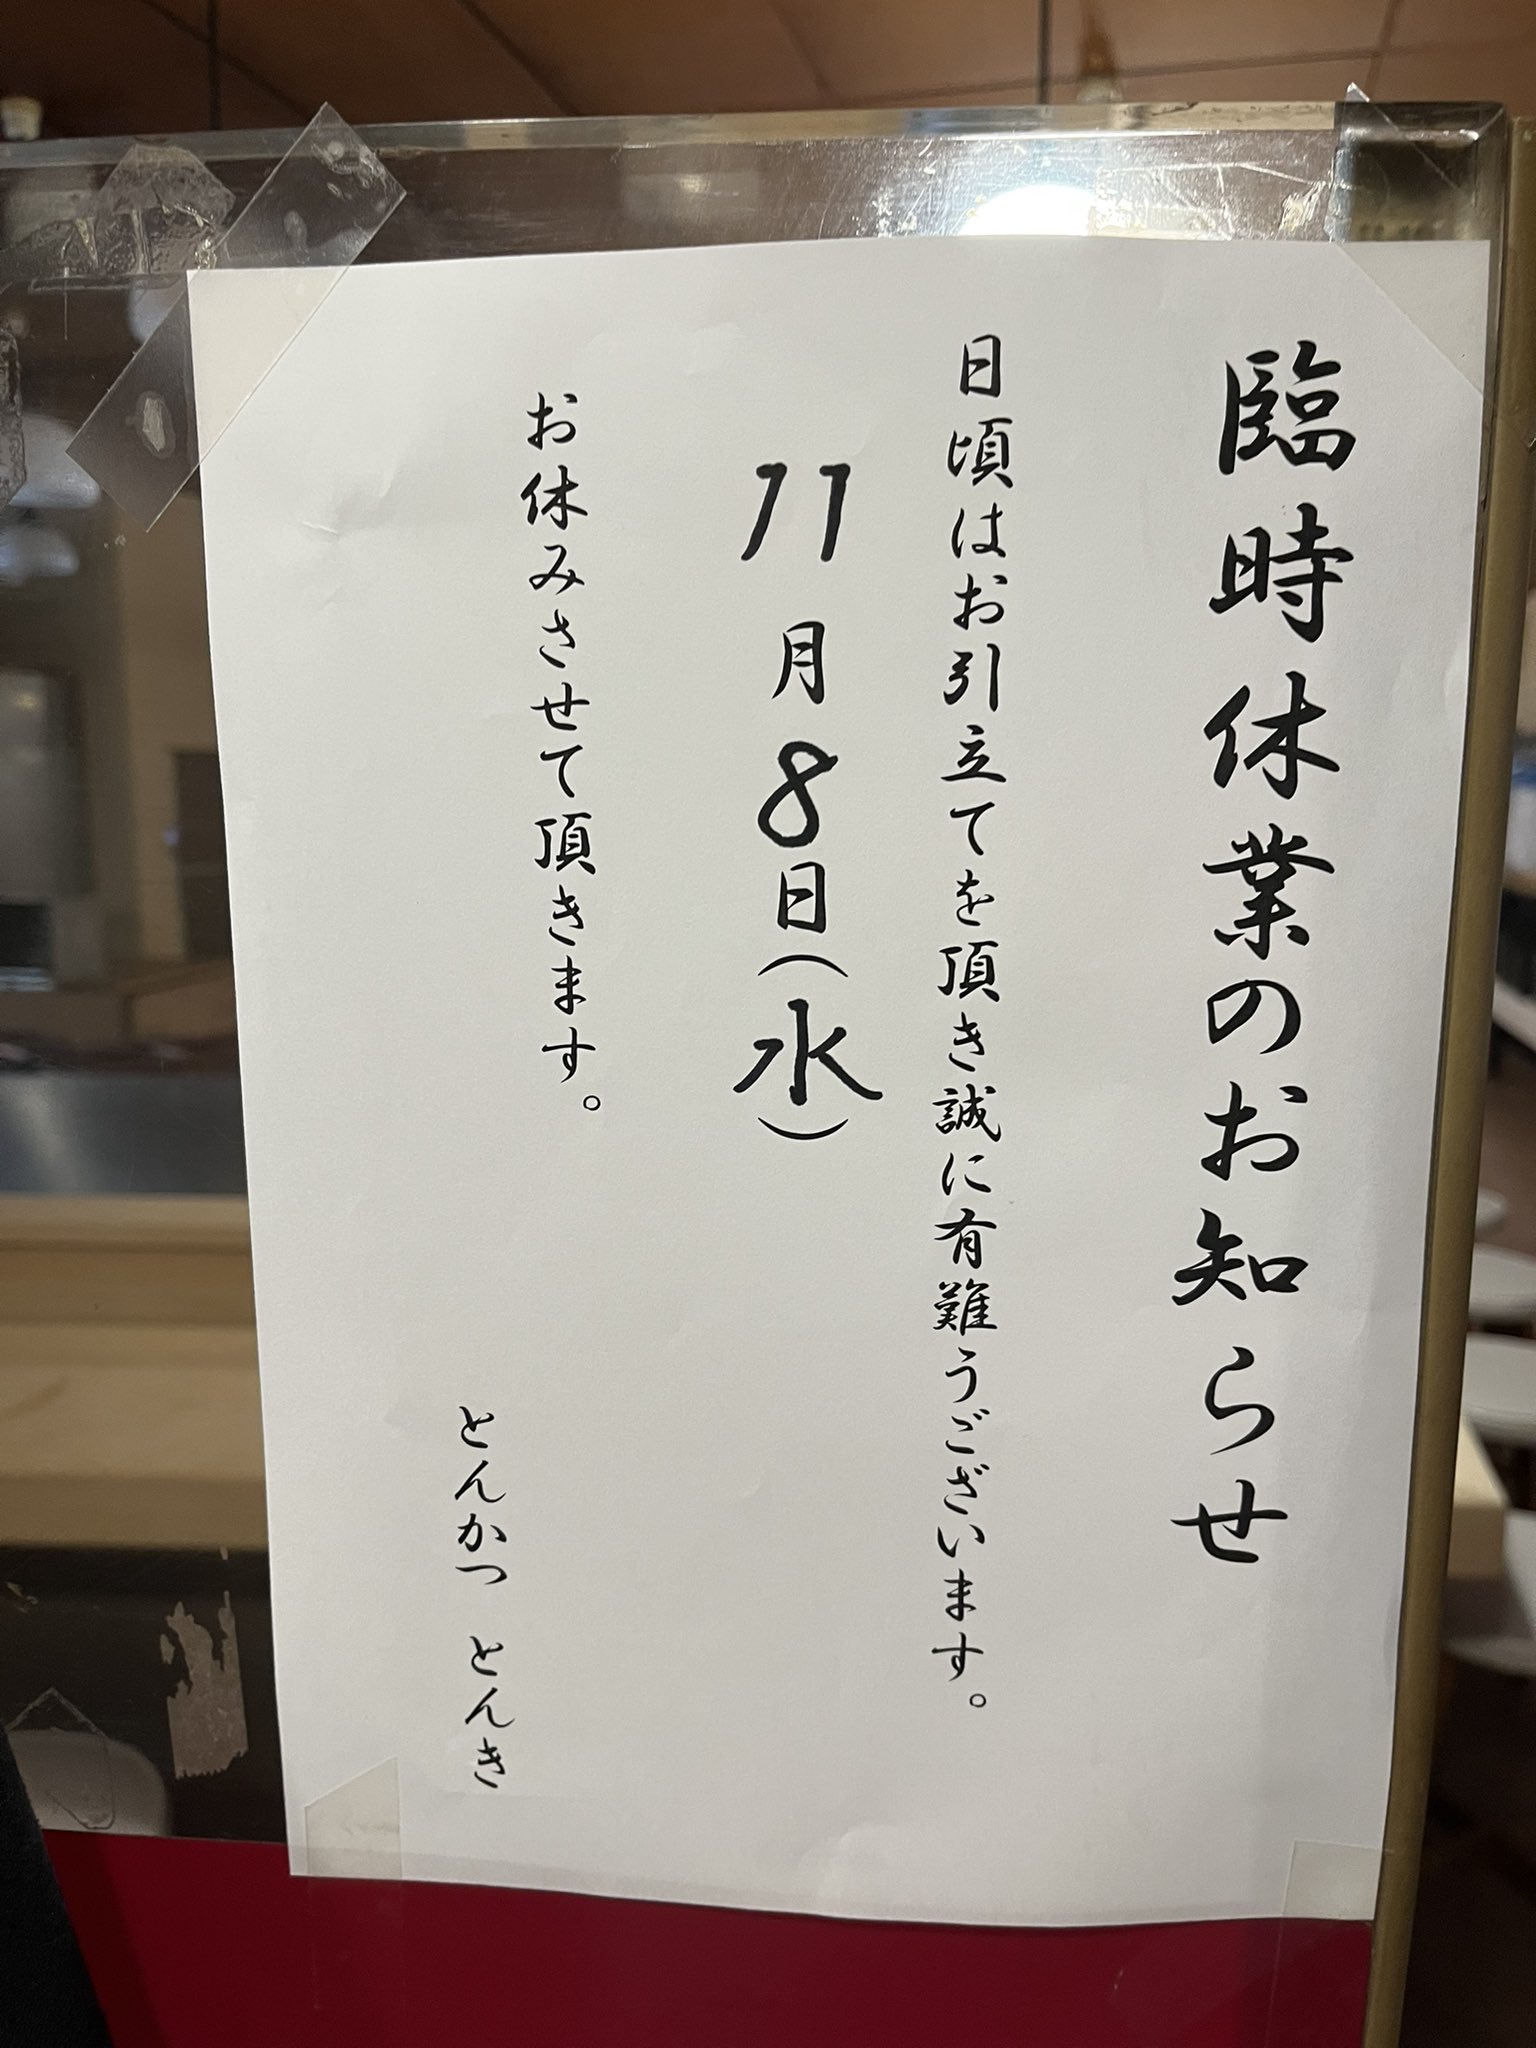 臨時休業のお知らせ
日頃はお引立てを頂き誠に有難うございます。
11月8日(水)
お休みさせて頂きます。
とんかつ とんき